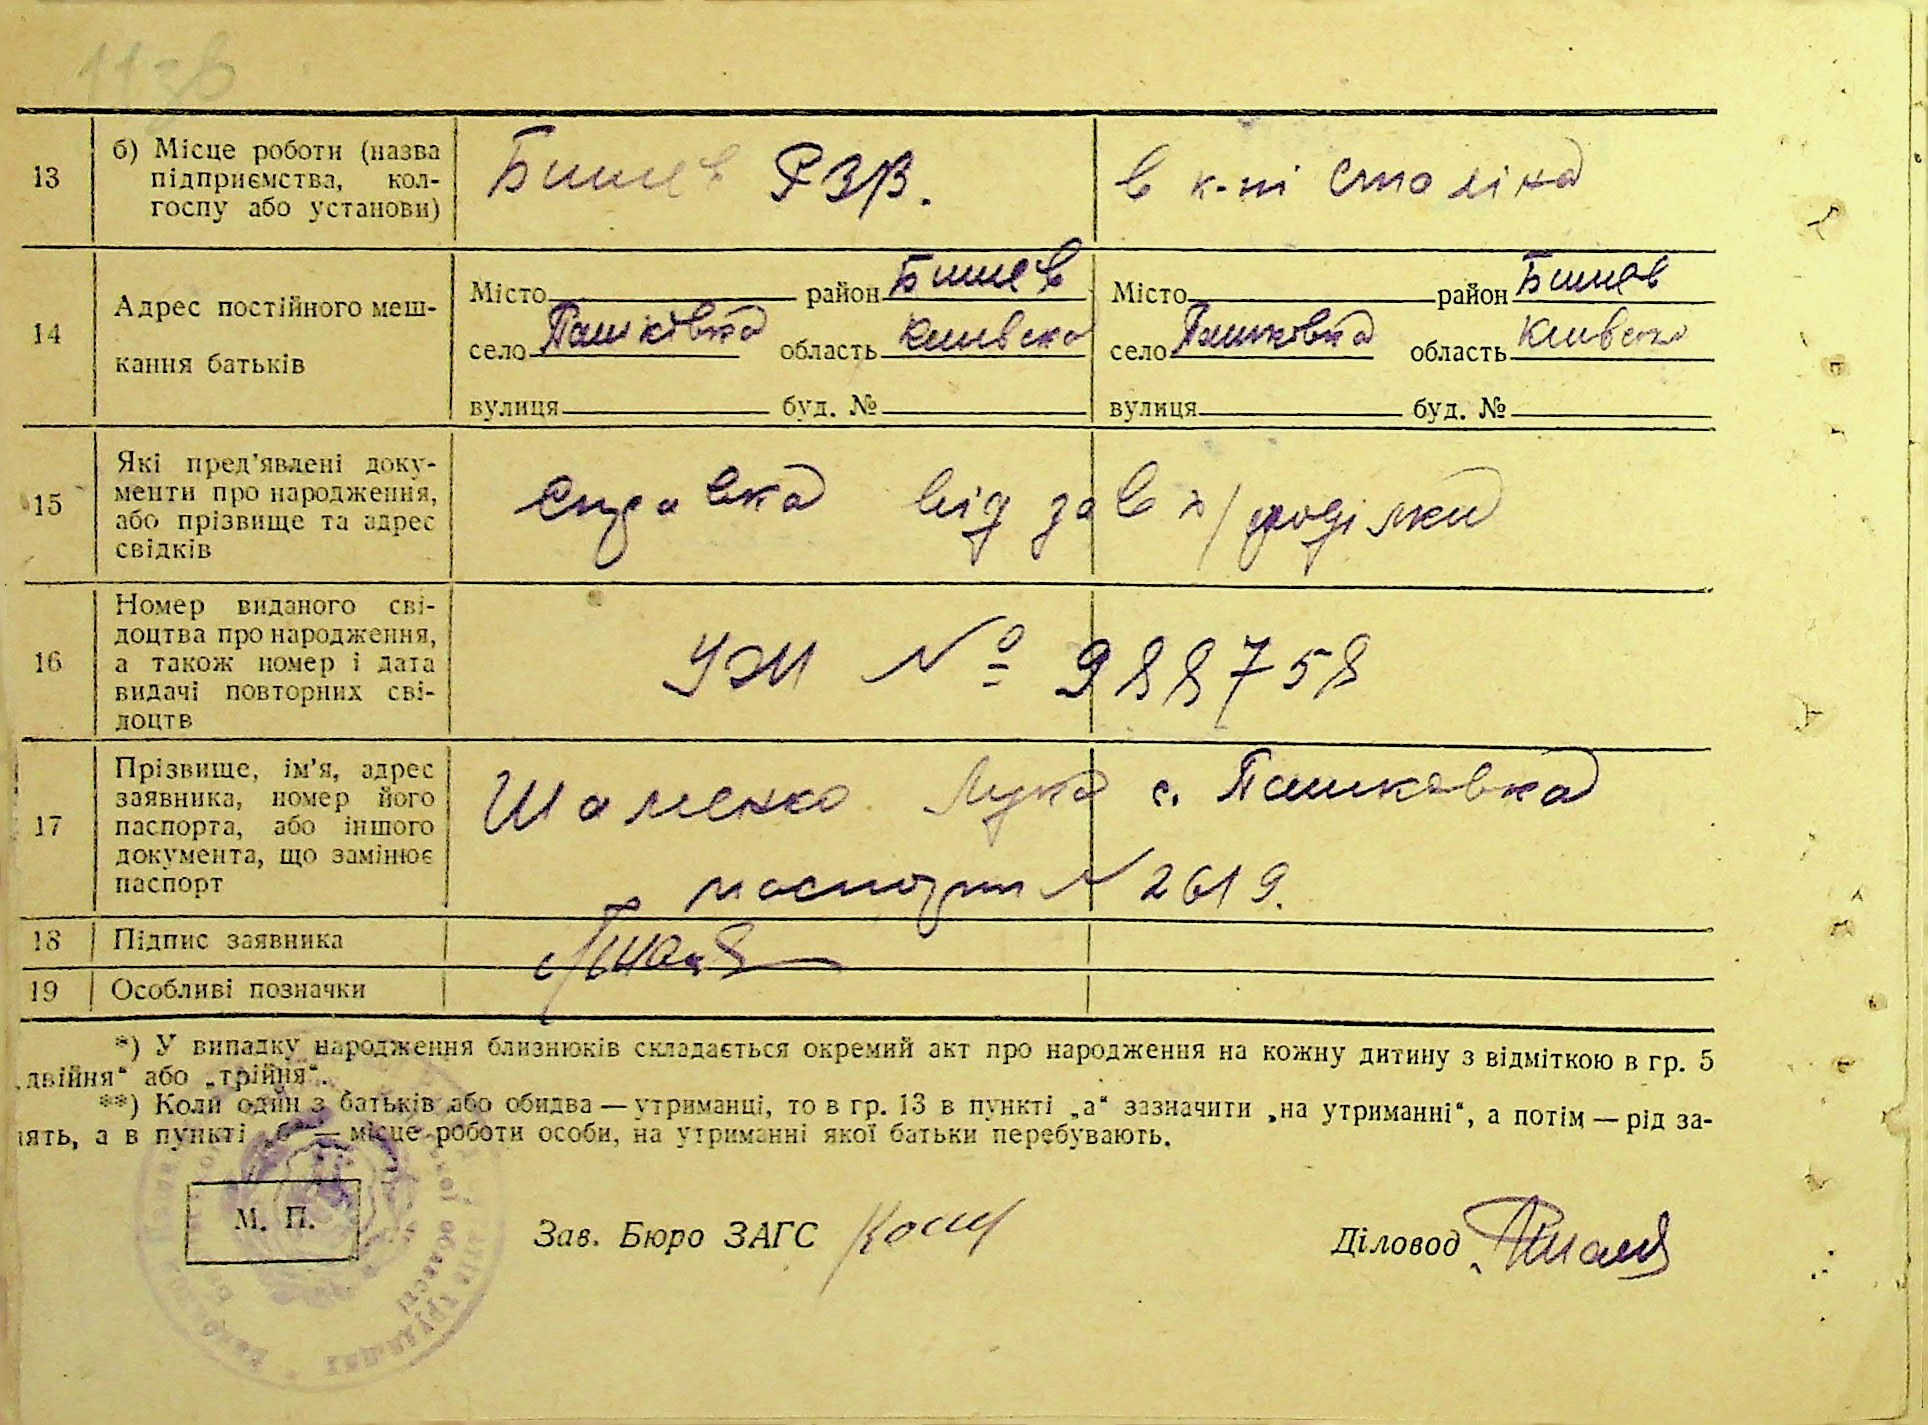 13 б) Місце роботи (назва підприємства, кол-госпу або установи) Бишев РЗВ. в к-пі Сталіна
14 Адрес постійного меш-кання батьків
Місто район Бишев Місто район Бишев
село Пашківка область Київська село Пашківка область Київська
вулиця буд. № вулиця буд. №
15 Які пред'явлені доку-менти про народження, або прізвище та адрес свідків справка від зав р/поділки
16 Номер виданого сві-доцтва про народження, а також номер і дата видачі повторних сві-доцтв УЖ № 988758
17 Прізвище, ім'я, адрес заявника, номер його паспорта, або іншого документа, що замінює паспорт Шаменко Лука с. Пашковка
паспорт № 2619.
18 Підпис заявника
19 Особливі позначки
*) У випадку народження близнюків складається окремий акт про народження на кожну дитину з відміткою в гр. 5
„двійня“ або „трійня“.
**) Коли один з батьків або обидва — утриманці, то в гр. 13 в пункті „а“ зазначити „на утриманні“, а потім — рід за-
нять, а в пункті „б“ — місце роботи особи, на утриманні якої батьки перебувають.
М. П. Зав. Бюро ЗАГС Діловод